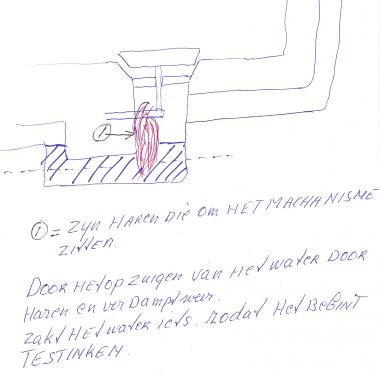 1
① = ZYN HAREN DIE OM HET MACHANISME
ZITTEN.
DOOR HET OP ZUIGEN VAN HET WATER DOOR
HAREN EN VERDAMPT WEER.
ZAKT HET WATER IETS. ZODAT HET BEGINT
TESTINKEN.